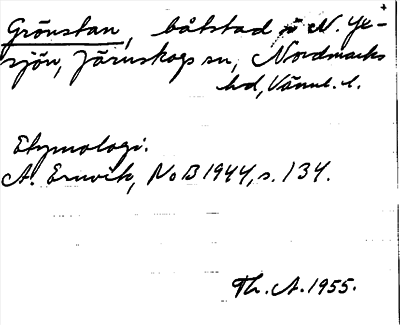 Grönstan, båtstad i N. Yx-
sjön, Järnskogs sn, Nordmarks
hd, Värml. l.
Etymologi.
A. Ernvik, NoB 1944, s. 134.
Th. A. 1955.